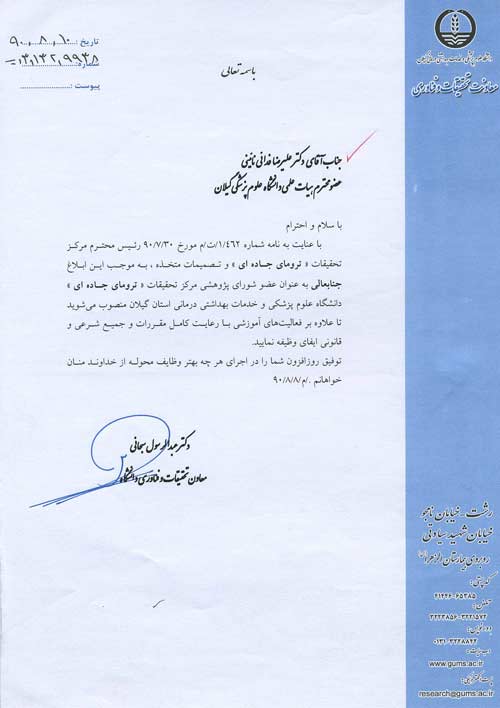 معاونت تحقیقات و فناوری
تاریخ : ۹۰,۸,۱۰
شماره
پیوست :
باسمه تعالی
جناب آقای دکتر علیرضا فدائی نائینی
عضو محترم هیات علمی دانشگاه علوم پزشکی گیلان
با سلام و احترام
با عنایت به نامه شماره ۱/۴۶۲/ت/م مورخ ۹۰/۷/۳۰ رئیس محترم مرکز
تحقیقات « ترومای جاده ای » و تصمیمات متخذه ، به موجب این ابلاغ
جنابعالی به عنوان عضو شورای پژوهشی مرکز تحقیقات « ترومای جاده ای »
دانشگاه علوم پزشکی و خدمات بهداشتی درمانی استان گیلان منصوب می‌شوید
تا علاوه بر فعالیت‌های آموزشی با رعایت کامل مقررات و جمیع شرعی و
قانونی ایفای وظیفه نمایید.
توفیق روزافزون شما را در اجرای هر چه بهتر وظایف محوله از خداوند منان
خواهانم ./م/۹۰/۸/۸
دکتر عبدالرسول سبحانی
معاون تحقیقات و فناوری دانشگاه
رشت - خیابان نامجو
خیابان شهید سیادتی
روبروی بیمارستان الزهرا
کد پستی:
۴۱۴۴۶-۶۵۳۸۵
تلفن:
۳۲۲۳۸۵۶-۳۲۲۱۵۷۲
دورنویس:
۰۱۳۱-۳۲۲۸۸۴۲
وب سایت:
www.gums.ac.ir
پست الکترونیکی:
research@gums.ac.ir